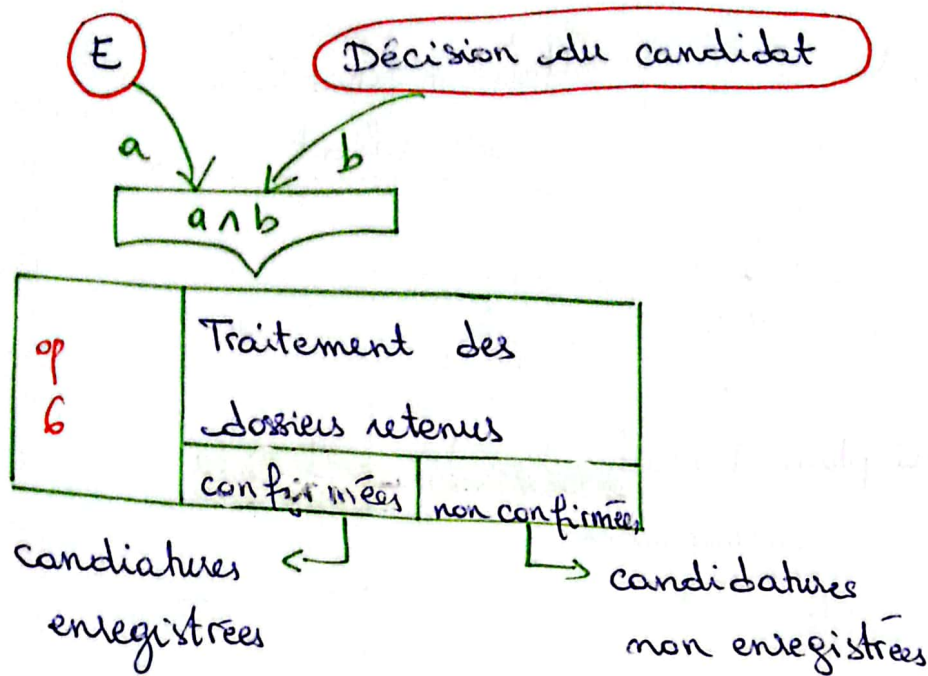 E
Décision du candidat
a
b
a ∧ b
op
6
Traitement des
dossiers retenus
confirmées
non confirmées
candiatures
enregistrées
candidatures
non enregistrées